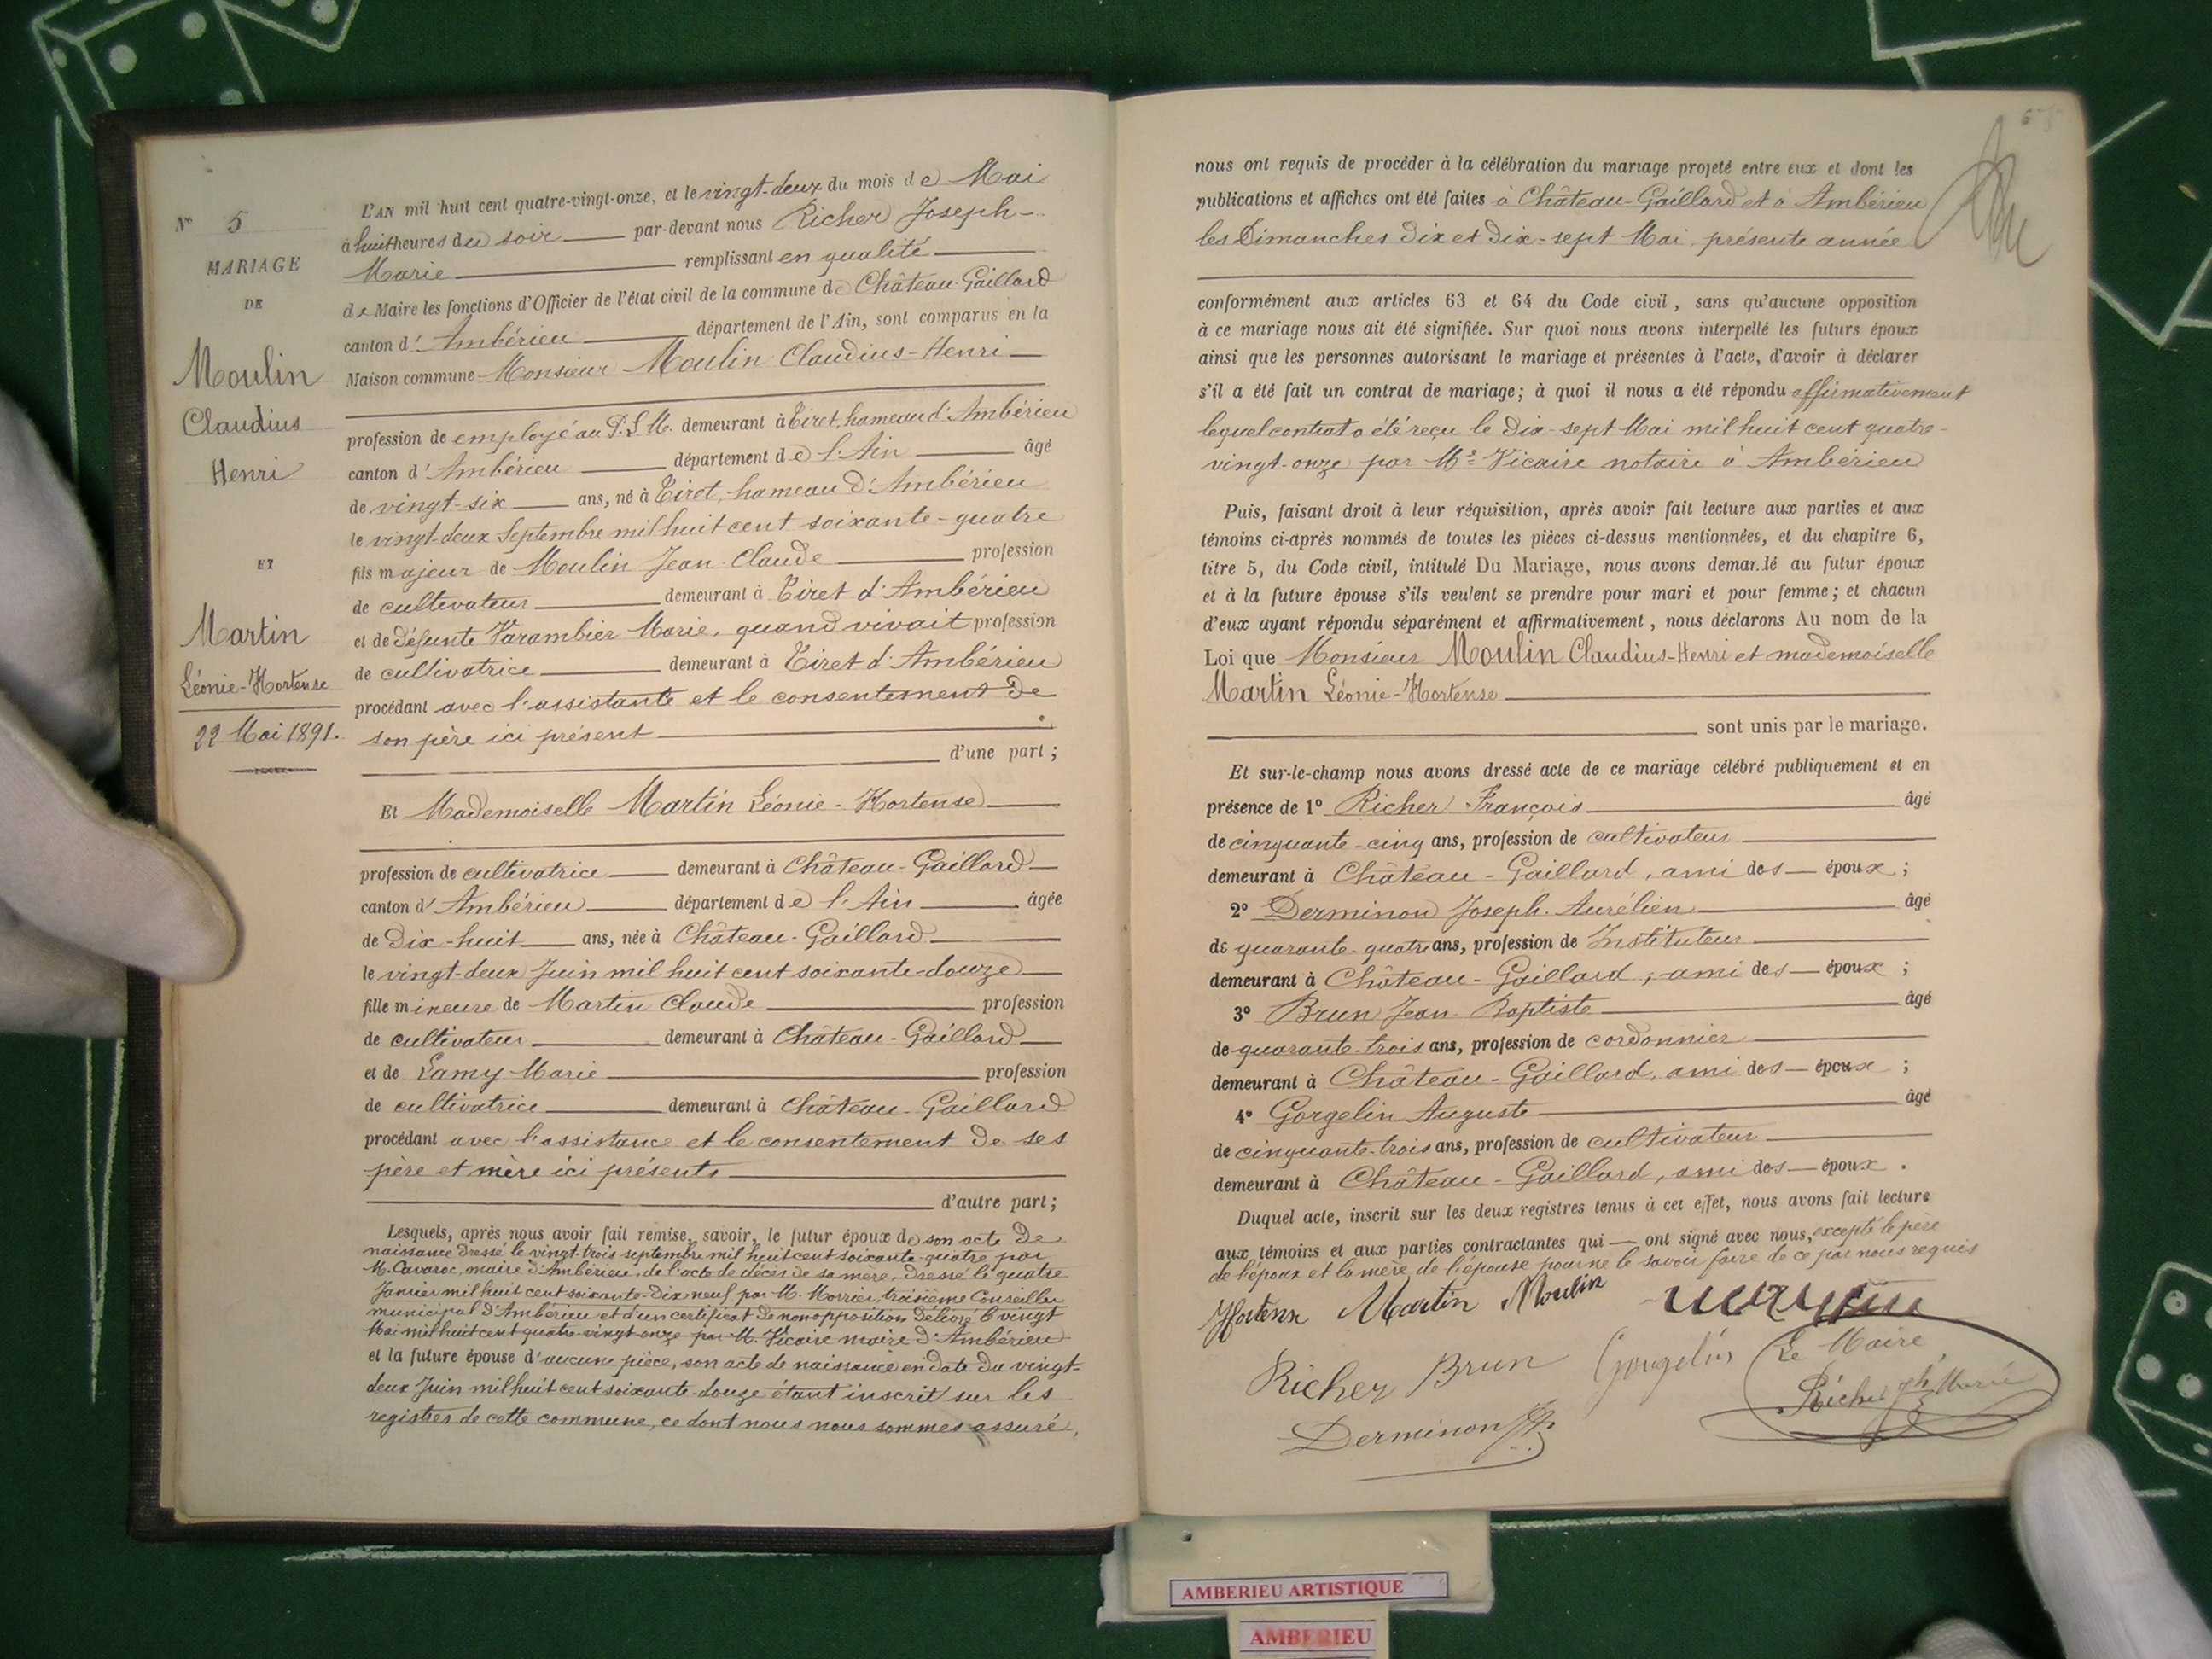 N° 5
MARIAGE
DE
Moulin
Claudius
Henri
ET
Martin
Léonie-Hortense
22 Mai 1891.
L'AN mil huit cent quatre-vingt-onze, et le vingt-deux du mois de Mai
à huit heures du soir par-devant nous Richer Joseph-
Marie remplissant en qualité
de Maire les fonctions d'Officier de l'état civil de la commune de Château-Gaillard
canton d'Ambérieu département de l'Ain, sont comparus en la
Maison commune Monsieur Moulin Claudius-Henri
profession de employé au P.L.M. demeurant à Tiret, hameau d'Ambérieu
canton d'Ambérieu département de l'Ain âgé
de vingt-six ans, né à Tiret, hameau d'Ambérieu
le vingt-deux Septembre mil huit cent soixante-quatre
fils majeur de Moulin Jean-Claude profession
de cultivateur demeurant à Tiret d'Ambérieu
et de défunte Varambier Marie, quand vivait profession
de cultivatrice demeurant à Tiret d'Ambérieu
procédant avec l'assistante et le consentement de
son père ici présent
d'une part ;
Et Mademoiselle Martin Léonie-Hortense
profession de cultivatrice demeurant à Château-Gaillard
canton d'Ambérieu département de l'Ain âgée
de dix-huit ans, née à Château-Gaillard
le vingt-deux Juin mil huit cent soixante-douze
fille mineure de Martin Claude profession
de cultivateur demeurant à Château-Gaillard
et de Lamy Marie profession
de cultivatrice demeurant à Château-Gaillard
procédant avec l'assistance et le consentement de ses
père et mère ici présents
d'autre part ;
Lesquels, après nous avoir fait remise, savoir, le futur époux de son acte de
naissance dressé le vingt-trois septembre mil huit cent soixante-quatre par
M. Cavaroc, maire d'Ambérieu, de l'acte de décès de sa mère, dressé le quatre
Janvier mil huit cent soixante-dix-neuf par M. Morrier, troisième Conseiller
municipal d'Ambérieu et d'un certificat de non opposition délivré le vingt
Mai mil huit cent quatre-vingt-onze par M. Vicaire maire d'Ambérieu
et la future épouse d'aucune pièce, son acte de naissance en date du vingt-
deux Juin mil huit cent soixante-douze étant inscrit sur les
registres de cette commune, ce dont nous nous sommes assuré,
nous ont requis de procéder à la célébration du mariage projeté entre eux et dont les
publications et affiches ont été faites à Château-Gaillard et à Ambérieu
les Dimanches dix et dix-sept Mai, présente année
conformément aux articles 63 et 64 du Code civil, sans qu'aucune opposition
à ce mariage nous ait été signifiée. Sur quoi nous avons interpellé les futurs époux
ainsi que les personnes autorisant le mariage et présentes à l'acte, d'avoir à déclarer
s'il a été fait un contrat de mariage; à quoi il nous a été répondu affirmativement
lequel contrat a été reçu le dix-sept Mai mil huit cent quatre-
vingt-onze par Me Vicaire notaire à Ambérieu
Puis, faisant droit à leur réquisition, après avoir fait lecture aux parties et aux
témoins ci-après nommés de toutes les pièces ci-dessus mentionnées, et du chapitre 6,
titre 5, du Code civil, intitulé Du Mariage, nous avons demandé au futur époux
et à la future épouse s'ils veulent se prendre pour mari et pour femme; et chacun
d'eux ayant répondu séparément et affirmativement, nous déclarons Au nom de la
Loi que Monsieur Moulin Claudius-Henri et mademoiselle
Martin Léonie-Hortense
sont unis par le mariage.
Et sur-le-champ nous avons dressé acte de ce mariage célébré publiquement et en
présence de 1° Richer François âgé
de cinquante-cinq ans, profession de cultivateur
demeurant à Château-Gaillard, ami des époux ;
2° Derminon Joseph-Aurélien âgé
de quarante-quatre ans, profession de Instituteur
demeurant à Château-Gaillard, ami des époux ;
3° Brun Jean-Baptiste âgé
de quarante-trois ans, profession de cordonnier
demeurant à Château-Gaillard, ami des époux ;
4° Gorgelin Auguste âgé
de cinquante-trois ans, profession de cultivateur
demeurant à Château-Gaillard, ami des époux.
Duquel acte, inscrit sur les deux registres tenus à cet effet, nous avons fait lecture
aux témoins et aux parties contractantes qui ont signé avec nous, excepté le père
de l'époux et la mère de l'épouse pour ne le savoir faire de ce par nous requis
Hortense Martin Moulin
Richer Brun Gorgelin Le Maire
Richer Jh Marie
Derminon
AMBERIEU ARTISTIQUE
AMBERIEU